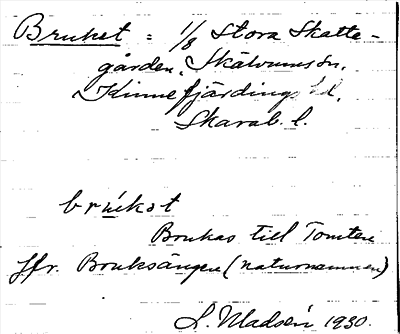 Bruket = 1/8 Stora Skatte-
gården, Skälvums sn,
Kinnefjärding hd,
Skarab. l.
brúkət
Brukas till Tomten
Jfr. Bruksängen (naturnamnen)
L. Madsén 1930.